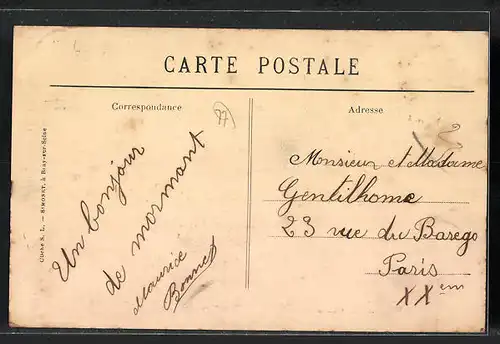 CARTE POSTALE
Correspondance
Adresse
77
Un bonjour
de mormant
Maurice
Bonnet
Monsieur et Madame
Gentilhome
23 rue du Barego
Paris
XXem
Cliché S. L. — SIMONET, à Bray-sur-Seine